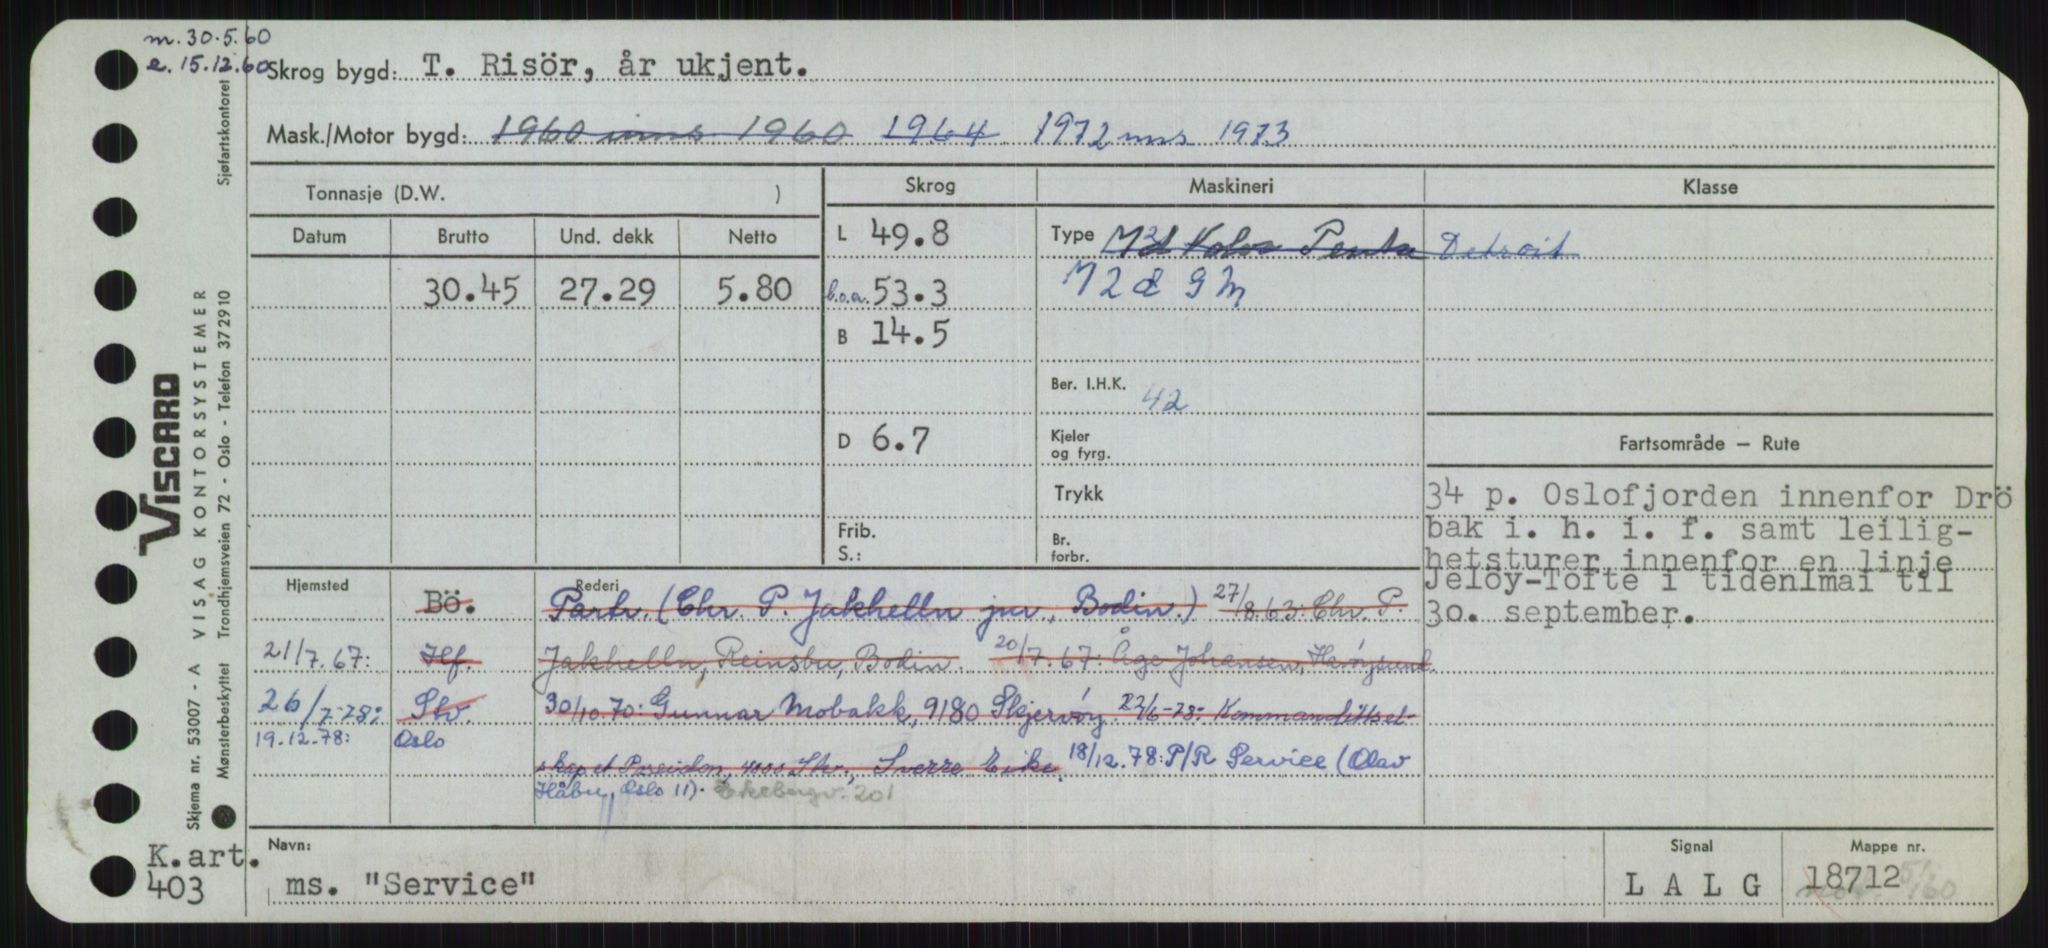 m. 30.5.60
e. 15.12.60
Skrog bygd: T. Risör, år ukjent.
Mask./Motor bygd: 1960 ums 1960 1964 1972 ms 1973
Tonnasje (D.W. )
Skrog
Maskineri
Klasse
Datum Brutto Und. dekk Netto
L 49.8
Type M2d Volvo Penta Detroit
30.45 27.29 5.80
l.o.a. 53.3
M 2 d GM
B 14.5
Ber. I.H.K. 42
D 6.7
Kjeler
og fyrg.
Fartsområde – Rute
Trykk
Frib.
S.:
Br.
forbr.
34 p. Oslofjorden innenfor Drö
bak i. h. i. f. samt leilig-
hetsturer innenfor en linje
Jelöy-Tofte i tidenlmai til
30. september.
Hjemsted
Rederi
Bö. Partr. (Chr. P. Jakhelln jnr., Bodin.) 27/8.63: Chr. P.
21/7.67: Hf. Jakhelln, Reinsbu, Bodin. 20/7.67: Åge Johansen, Havöysund.
26/7-78: Stv. 30/10.70: Gunnar Mobakk, 9180 Skjervöy. 22/6-78: Kommandittsel-
19.12.78: Oslo skapet Poseidon, 4000 Stv., Sverre Eike. 18/12.78: P/R Service (Olav
Håbu, Oslo 11). Ekebergv. 201
Navn:
ms. "Service"
Signal
L A L G
Mappe nr.
18712
K.art.
403
VISCARD
VISAG KONTORSYSTEMER
Skjema nr. 53007 - A
Sjøfartskontoret
Mønsterbeskyttet Trondhjemsveien 72 - Oslo - Telefon 372910